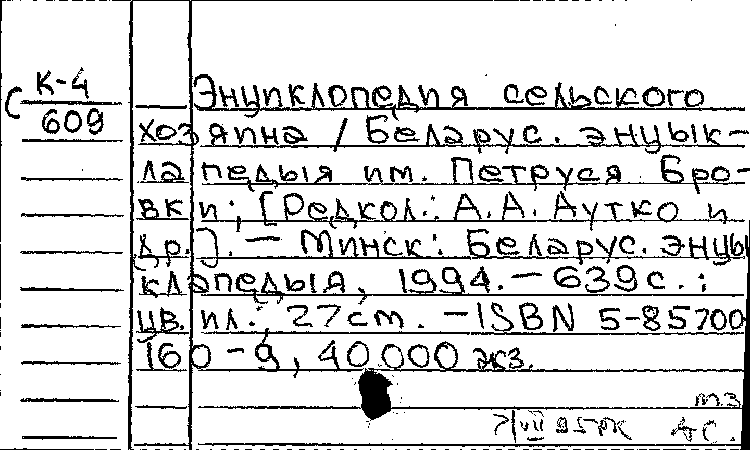 С К-4
609
Энциклопедия сельского
хозяина / Беларус. энцык-
лапедыя им. Петруся Бро-
вки; [Редкол.: А.А. Аутко и
др.]. — Минск: Беларус. энцы
клапедыя, 1994. — 639с.:
цв. ил.; 27см. — ISBN 5-85700
160-9, 40000 экз.
мз
7/VII 95
АС.